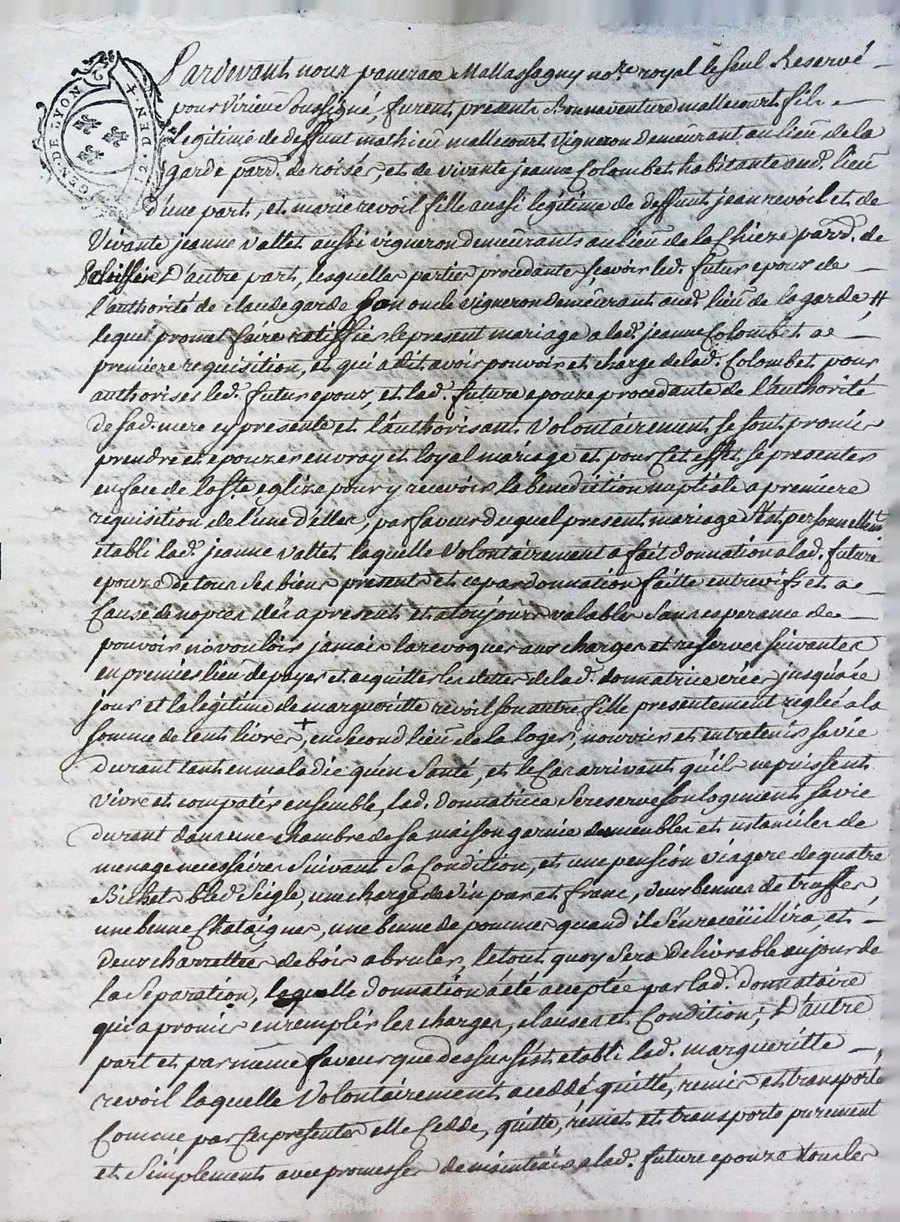 GEN · DE LYON
DEN · C
Pardevant nous pancrace Mallassagny no.re royal le seul Reservé
pour virieu soussigné, furent presents Bonnaventure mallecourt fils
Legitime de deffunt mathieu mallecourt vigneron demeurant au lieu de la
garde parr. de roisey, et de vivante jeanne Colombet habitante aud. lieu
d'une part, et marie revoil fille aussi legitime de deffunt jean revoil et de
Vivante jeanne vallet aussi vigneron demeurants au lieu de la Chieze parr. de
D'autre part, lesquelles parties procedantes scavoir led. futur epoux de
l'authorité de claude garde son oncle vigneron demeurant aud. lieu de la garde #
lequel promet faire ratiffier le present mariage a lad. jeanne Colombet a
premiere requisition, et qui a dit avoir pouvoir et charge de lad. Colombet pour
authoriser led. futur epoux, et lad. future epouze procedante de l'authorité
de sad. mere cy presente et l'authorisant Volontairement se sont promis
prendre et epouzer en vray et loyal mariage et pour cet effet se presenter
en face de la s.te eglize pour y recevoir la benediction nuptiale a premiere
requisition de l'une d'elles, par faveur duquel present mariage s'est personnellem.t
etabli lad. jeanne vallet laquelle Volontairement a fait donnation a lad. future
epouze de tous ses biens presents et par donnation faitte entrevifs et a
Cause de nopces dès a present et a toujours valable sans esperance de
pouvoir n'y vouloir jamais la revoquer aux charges et reserves suivantes
en premier lieu de payer et acquitter les dettes de lad. donnatrice créés jusqu'à ce
jour et la légitime de margueritte revoil son autre fille presentement reglée a la
somme de cent livres +, en second lieu de la loger, nourrir et entretenir sa vie
durant tant en maladie qu'en santé, et le cas arrivant qu'ils ne puissent
vivre et compatir ensemble, lad. donnatrice se reserve son logement sa vie
durant dans une chambre de sa maison garnie de meubles et ustanciles de
menage necessaires suivant sa Condition, et une pension viagere de quatre
Bichets bled seigle, une charge de vin pur et franc, deux bennes de truffes
une benne Chataignes, une benne de pommes quand il s'en recuëillira, et
deux charrettes de bois a bruler, le tout quoy sera delivrable au jour de
la separation, laquelle donnation a été acceptée par lad. donnataire
qui a promis en remplir les charges, clauses et Condition; D'autre
part et par même faveur que dessus s'est etabli lad. margueritte
revoil laquelle Volontairement a ceddé quitté, remis et transporté
Comme par ces presentes elle Cedde, quitte, remet et transporte purement
et Simplement avec promesses de maintenir a lad. future epouze tous les